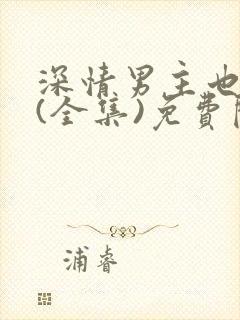 深情男主也
(全集)免費
浦睿